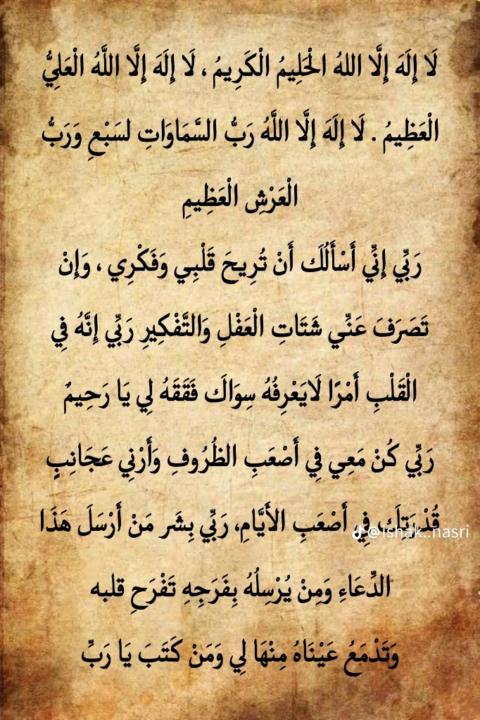 لَا إِلَهَ إِلَّا اللهُ الْحَلِيمُ الْكَرِيمُ ، لَا إِلَهَ إِلَّا اللَّهُ الْعَلِيُّ
الْعَظِيمُ . لَا إِلَهَ إِلَّا اللَّهُ رَبُّ السَّمَاوَاتِ لسَبْعِ وَرَبُّ
الْعَرْشِ الْعَظِيمِ
رَبِّي إِنِّي أَسْأَلُكَ أَنْ تُرِيحَ قَلْبِي وَفَكْرِي ، وَإِنْ
تَصَرَفَ عَنِّي شَتَاتِ الْعَفْلِ وَالتَّفْكِيرِ رَبِّي إِنَّهُ فِي
الْقَلْبِ أَمْرًا لَايَعْرِفُهُ سِوَاكَ فَقَقَهُ لِي يَا رَحِيمُ
رَبِّي كُنْ مَعِي فِي أَصْعَبِ الظُرُوفِ وَأَرْنِي عَجَانِبٍ
قُدْرَتِكَ، فِي أَصْعَبِ الأَيَّامِ، رَبِّي بِشَر مَنْ أَرْسَلَ هَذَا
@ishak..nasri
الدِّعَاءِ وَمِنْ يُرْسِلُهُ بِفَرَجِهِ تَفْرَحِ قلبه
وَتَدْمَعُ عَيْنَاهُ مِنْهَا لِي وَمَنْ كَتَبَ يَا رَبِّ